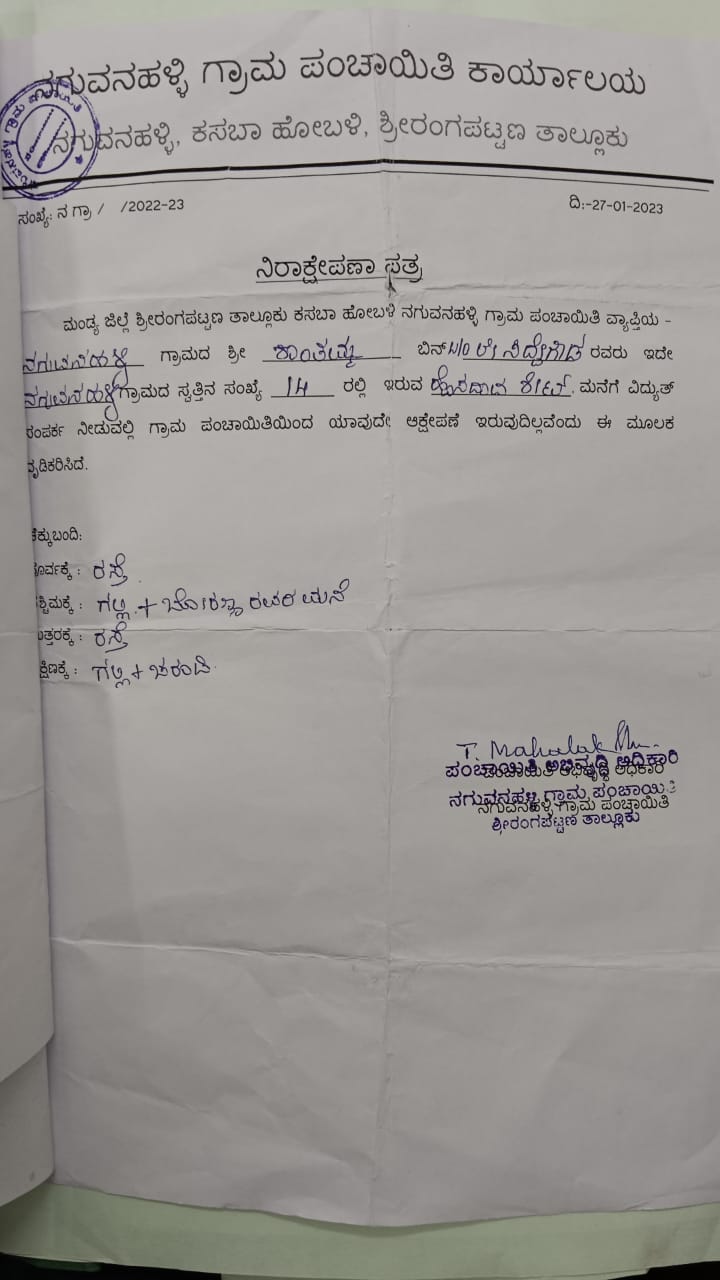 ನಗುವನಹಳ್ಳಿ ಗ್ರಾಮ ಪಂಚಾಯಿತಿ ಕಾರ್ಯಾಲಯ
ನಗುವನಹಳ್ಳಿ, ಕಸಬಾ ಹೋಬಳಿ, ಶ್ರೀರಂಗಪಟ್ಟಣ ತಾಲ್ಲೂಕು
ಸಂಖ್ಯೆ: ನ ಗ್ರಾ / /2022-23 ದಿ:-27-01-2023
ನಿರಾಕ್ಷೇಪಣಾ ಪತ್ರ
ಮಂಡ್ಯ ಜಿಲ್ಲೆ ಶ್ರೀರಂಗಪಟ್ಟಣ ತಾಲ್ಲೂಕು ಕಸಬಾ ಹೋಬಳಿ ನಗುವನಹಳ್ಳಿ ಗ್ರಾಮ ಪಂಚಾಯಿತಿ ವ್ಯಾಪ್ತಿಯ -
ನಗುವನಹಳ್ಳಿ ಗ್ರಾಮದ ಶ್ರೀ ಶಾಂತಮ್ಮ ಬಿನ್ W/O ಲೇ ಸಿದ್ದೇಗೌಡ ರವರು ಇದೇ
ನಗುವನಹಳ್ಳಿ ಗ್ರಾಮದ ಸ್ವತ್ತಿನ ಸಂಖ್ಯೆ 14 ರಲ್ಲಿ ಇರುವ ಶೀಟ್ ಮನೆಗೆ ವಿದ್ಯುತ್
ಸಂಪರ್ಕ ನೀಡುವಲ್ಲಿ ಗ್ರಾಮ ಪಂಚಾಯಿತಿಯಿಂದ ಯಾವುದೇ ಆಕ್ಷೇಪಣೆ ಇರುವುದಿಲ್ಲವೆಂದು ಈ ಮೂಲಕ
ದೃಡಿಕರಿಸಿದೆ.
ಚೆಕ್ಕುಬಂದಿ:
ಪೂರ್ವಕ್ಕೆ : ರಸ್ತೆ
ಪಶ್ಚಿಮಕ್ಕೆ : ಗಲ್ಲಿ + ಬೋರಣ್ಣ ರವರ ಮನೆ
ಉತ್ತರಕ್ಕೆ : ರಸ್ತೆ
ದಕ್ಷಿಣಕ್ಕೆ : ಗಲ್ಲಿ + ಚರಂಡಿ
ಪಂಚಾಯಿತಿ ಅಭಿವೃದ್ಧಿ ಅಧಿಕಾರಿ
ಪಂಚಾಯಿತಿ ಅಭಿವೃದ್ಧಿ ಅಧಿಕಾರಿ
ನಗುವನಹಳ್ಳಿ ಗ್ರಾಮ ಪಂಚಾಯಿತಿ
ನಗುವನಹಳ್ಳಿ ಗ್ರಾಮ ಪಂಚಾಯಿತಿ
ಶ್ರೀರಂಗಪಟ್ಟಣ ತಾಲ್ಲೂಕು